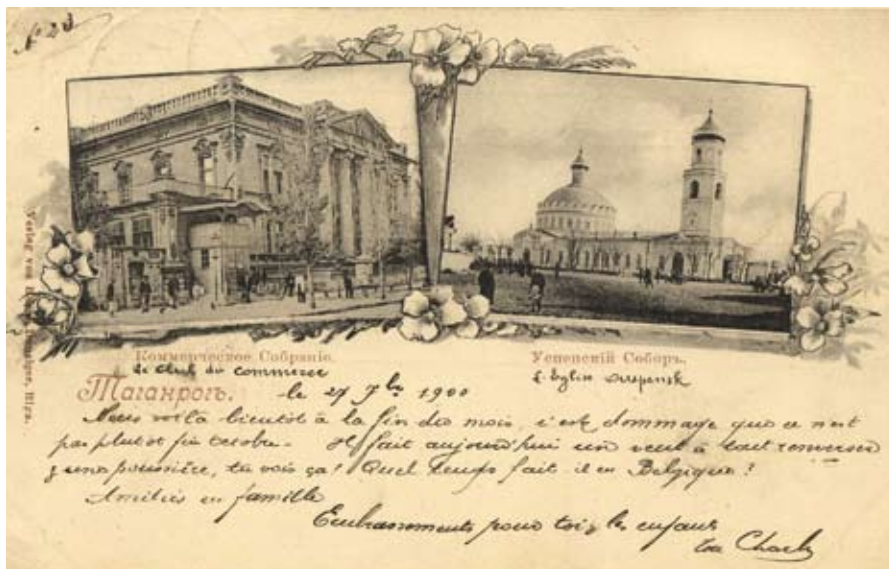 № 23
Verlag von
Riga.
Коммерческое Собраніе.
Успенскій Соборъ.
Le Club du commerce
L'Eglise Ouspensk
Таганрогъ.
le 27 7bre 1900
Nous voilà bientôt à la fin du mois, c'est dommage que ce n'est
pas plutot fin octobre. Il fait aujourd'hui un vent à tout renverser
& une poussière, tu vois ça! Quel temps fait il en Belgique?
Amitiés en famille
Embrassements pour toi & les enfants
ton Charles